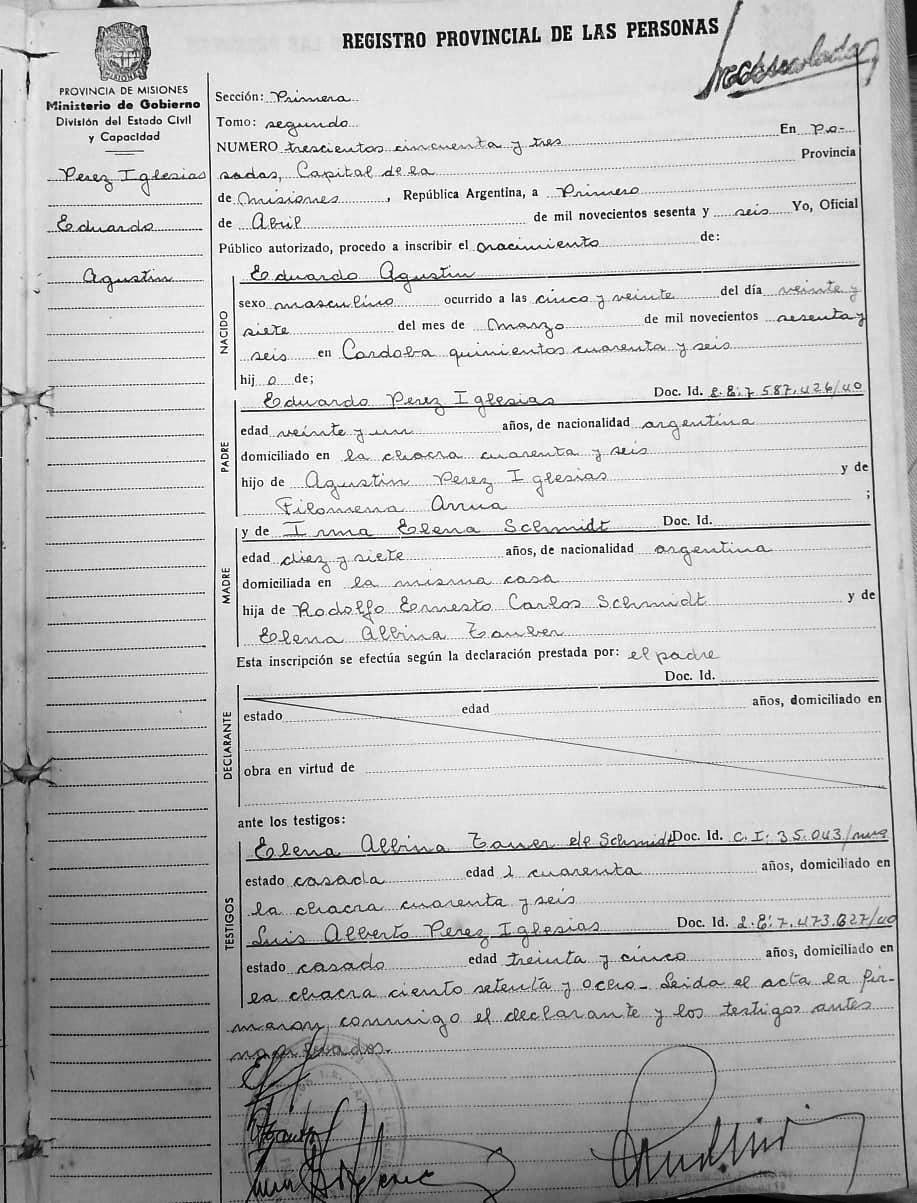 REGISTRO PROVINCIAL DE LAS PERSONAS
PROVINCIA DE MISIONES
Ministerio de Gobierno
División del Estado Civil
y Capacidad
Perez Iglesias
Eduardo
Agustin
Sección: Primera
Tomo: segundo
NUMERO trescientos cincuenta y tres En Po-
sadas, Capital de la Provincia
de Misiones, República Argentina, a Primero
de Abril de mil novecientos sesenta y seis Yo, Oficial
Público autorizado, procedo a inscribir el nacimiento de:
NACIDO
Eduardo Agustin
sexo masculino ocurrido a las cinco y veinte del día veinte y
siete del mes de Marzo de mil novecientos sesenta y
seis en Cordoba quinientos cuarenta y seis
hij o de;
PADRE
Eduardo Perez Iglesias Doc. Id. L.E: 7.587.426/40
edad veinte y un años, de nacionalidad argentina
domiciliado en la chacra cuarenta y seis
hijo de Agustin Perez Iglesias y de
Filomena ;
MADRE
y de Irma Elena Schmidt Doc. Id.
edad diez y siete años, de nacionalidad argentina
domiciliada en la misma casa
hija de Rodolfo Ernesto Carlos Schmidt y de
Elena Albina Tauber
Esta inscripción se efectúa según la declaración prestada por: el padre
Doc. Id.
DECLARANTE
estado edad años, domiciliado en
obra en virtud de
ante los testigos:
TESTIGOS
Elena Albina Tauer de Schmidt Doc. Id. C.I: 35.043/mnes
estado casada edad cuarenta años, domiciliado en
la chacra cuarenta y seis
Luis Alberto Perez Iglesias Doc. Id. L.E: 7.473.627/40
estado casado edad treinta y cinco años, domiciliado en
la chacra ciento setenta y ocho_ Leida el acta la fir-
maron conmigo el declarante y los testigos antes